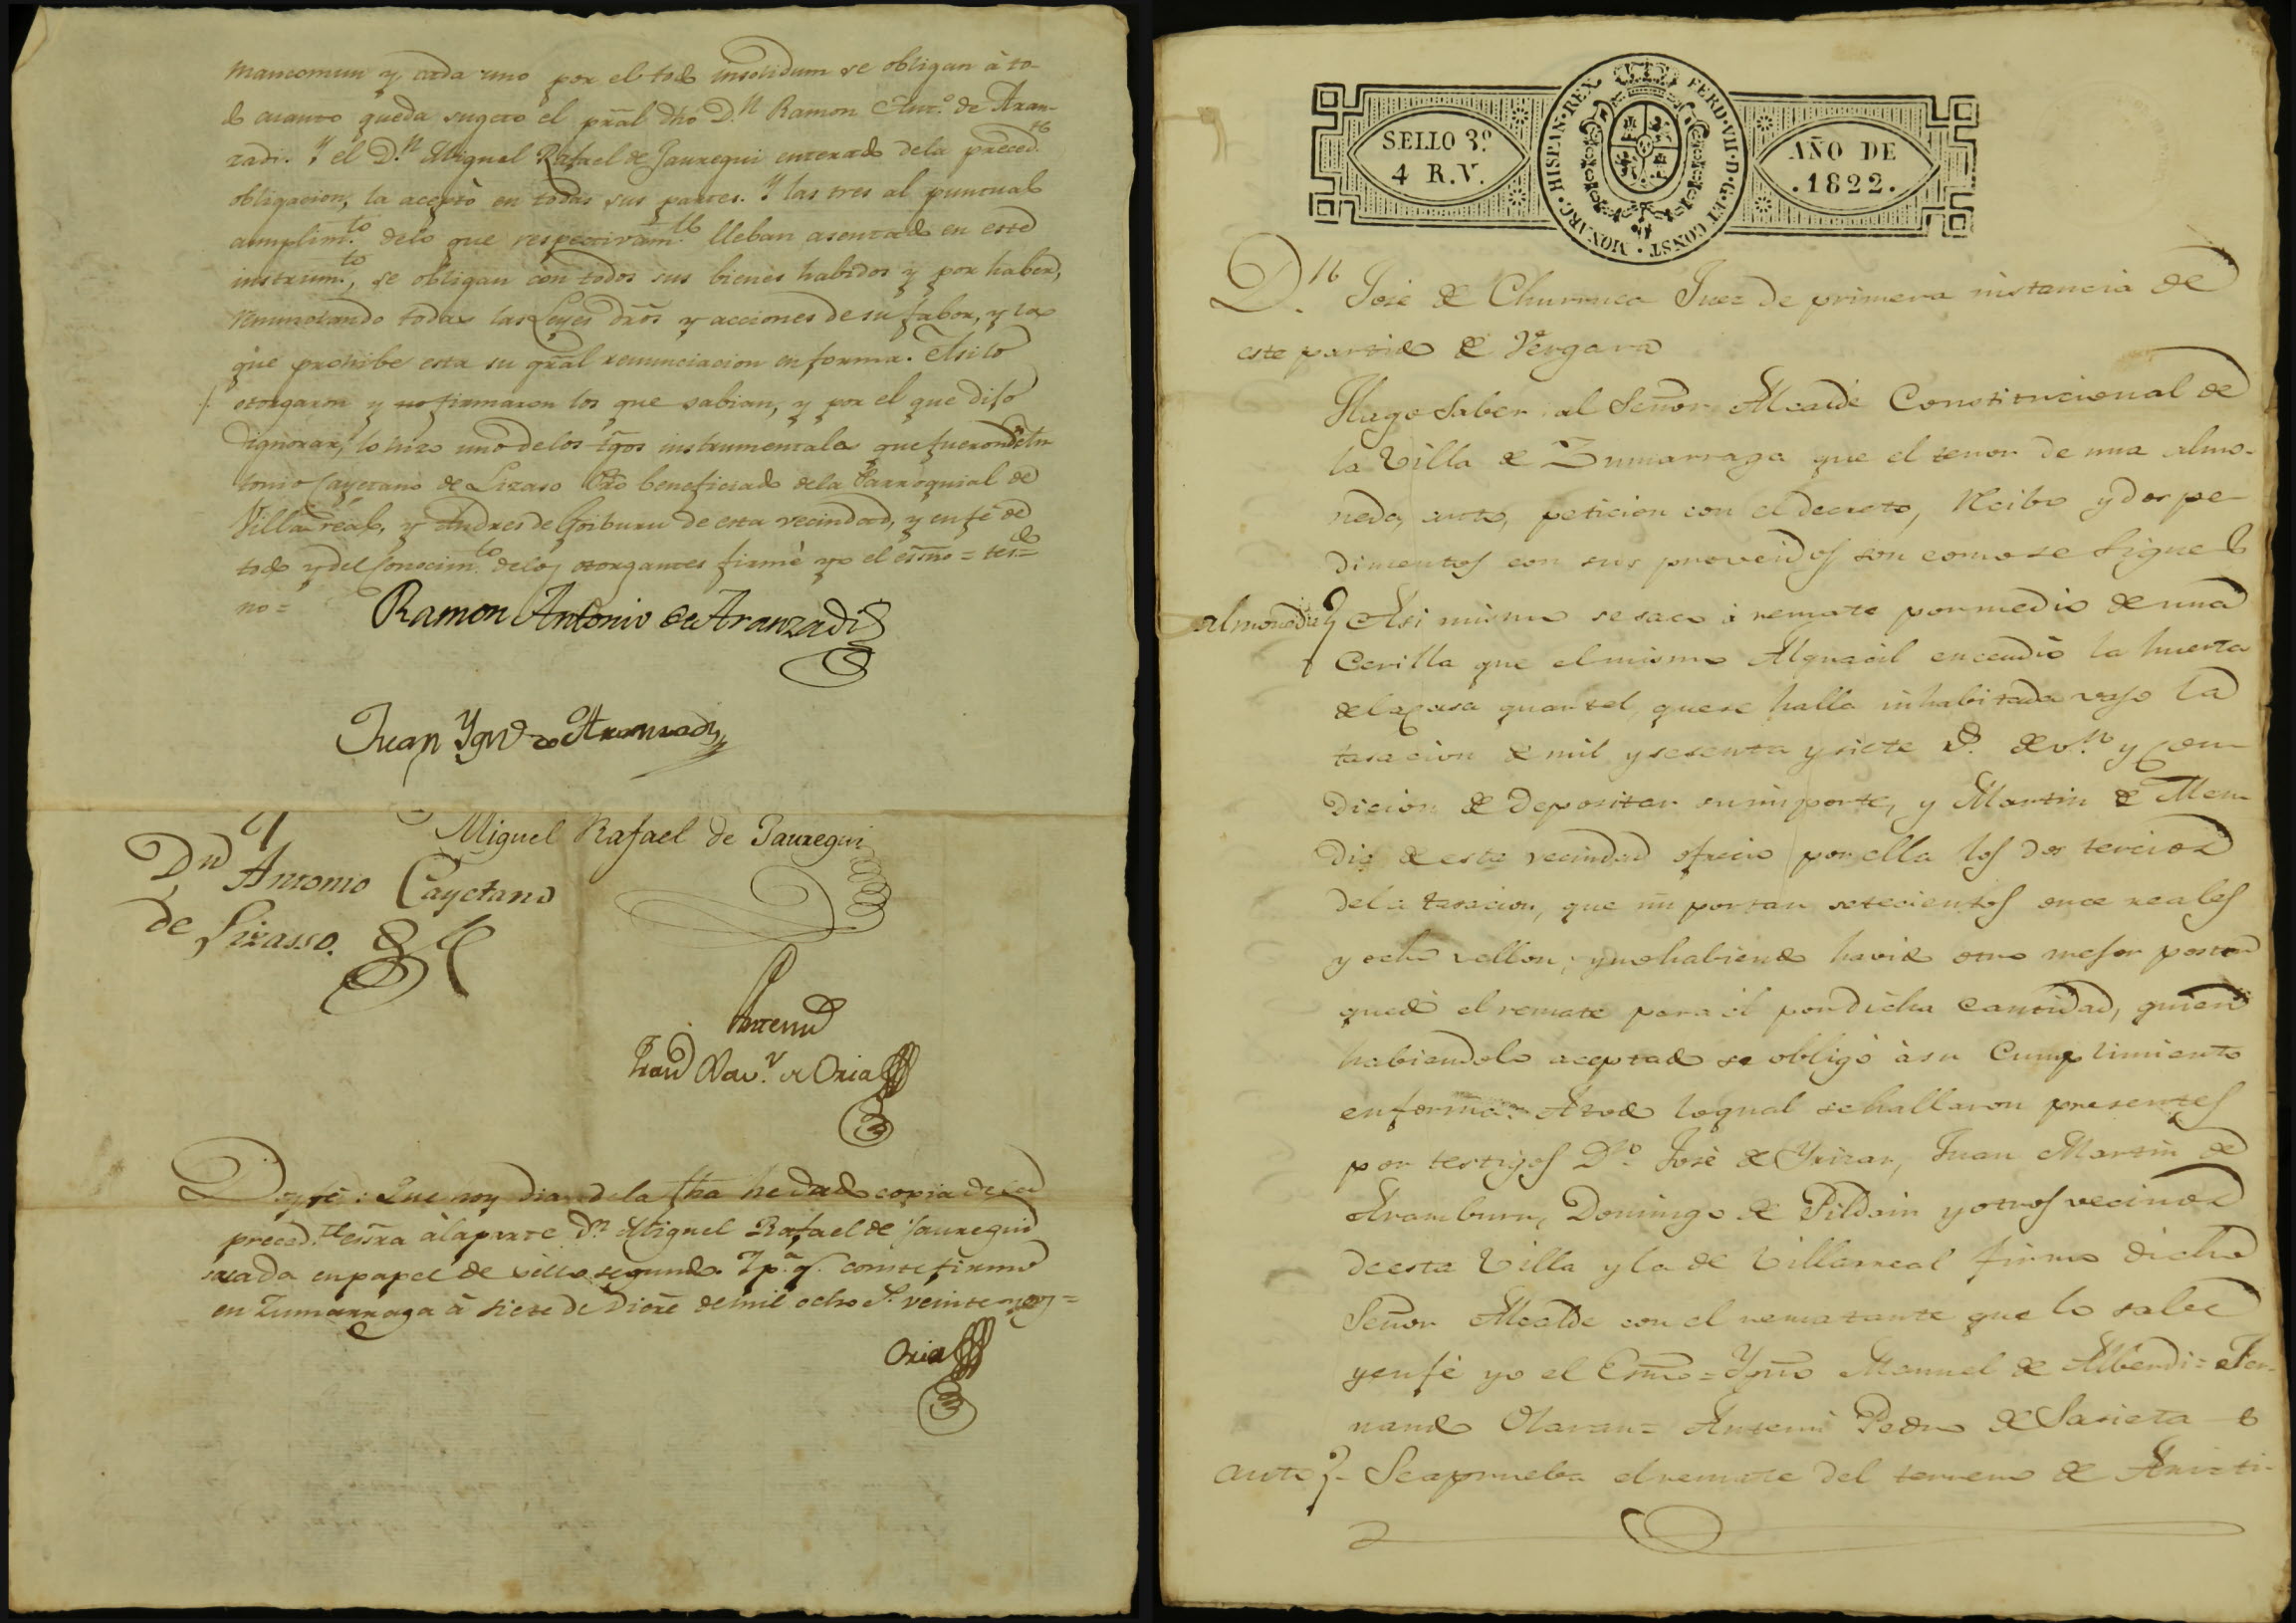 mancomun y cada uno por el todo insolidum se obligan à to-
do cuanto queda sugeto el pral dho D.n Ramon Ant.o de Aran-
zadi. Y el D.n Miguel Rafael de Jauregui enterado dela preced.te
obligacion, la aceptò en todas sus partes. Y las tres al puntual
cumplim.to delo que respectivam.te lleban asentado en este
instrum.to, se obligan con todos sus bienes habidos y por haber,
renunciando todas las Leyes dros y acciones de su fabor, y la
que prohibe esta su gral renunciacion en forma. Asi lo
otorgaron y no firmaron los que sabian, y por el que dijo
ignorar, lo hizo uno delos tgos instrumentales que fueron D.n An
tonio Cayetano de Lizaso Pbro beneficiado dela Parroquial de
Villa real, y Andres de Goiburu de esta vecindad, y en fé de
todo y del Conocim.to delos otorgantes firmé yo el essno = tes.do
no =
Ramon Antonio de Aranzadi
Juan Ygn.o de Aranzadi
Miguel Rafael de Jauregui
D.n Antonio Cayetano
de Lizasso.
Antemi
Fran.co Xav.r de Oria
Doy fé: Que hoy dia dela fha he dado copia dela
preced.te essra àla parte D.n Miguel Rafael de Jauregui
sacada en papel de sello segundo. Y p.a q.e conste firmo
en Zumarraga à siete de Diore de mil ocho c.s veinte y dos =
Oria
SELLO 3.º
4 R.V.
HISPAN·REX. FERD·VII·D·G·ET CONST·MONARC·
AÑO DE
.1822.
D.n José de Churruca Juez de primera instancia de
este partido de Vergara
Hago saber al Señor Alcalde Constitucional de
la Villa de Zumarraga que el tenor de una almo-
neda, auto, peticion con el decreto, recibo y dos pe-
dimentos con sus proveidos son como se sigue
almoneda} Asi mismo se saco à remate por medio de una
Cerilla que el mismo Alguacil encendiò la huerta
dela Casa quartel, que se halla inhabitada vajo la
tasacion de mil y sesenta y siete r.s de v.n y con-
dicion de depositar su importe, y Martin de Men-
dia de esta vecindad ofrecio por ella los dos tercios
dela tasacion, que importan setecientos once reales
y ocho vellon; y no habiendo havido otro mejor postor
quedò el remate para él por dicha Cantidad, quien
habiendolo aceptado se obligò à su Cumplimiento
en forma: A todo lo qual se hallaron presentes
por testigos D.n José de Yrizar, Juan Martin de
Aramburu, Domingo de Pildain y otros vecinos
de esta Villa y la de Villarreal firmo dicho
Señor Alcalde con el rematante que lo sabe
y en fé yo el Esno = Ygno Manuel de Alberdi = Fer-
nando Olaran = Antemi Pedro de Sasieta
auto}- Se aprueba el remate del terreno de Aristi-